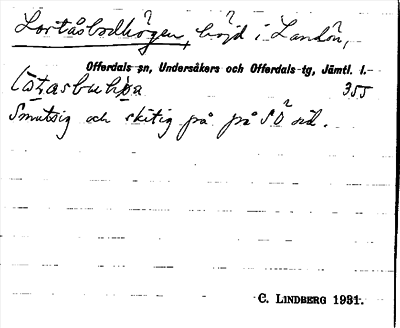 Lortåsbodhögen, höjd i Landön,
Offerdals sn, Undersåkers och Offerdals tg, Jämtl. l.
355
Smutsig och skitig på på SÖ sid.
C. LINDBERG 1931.